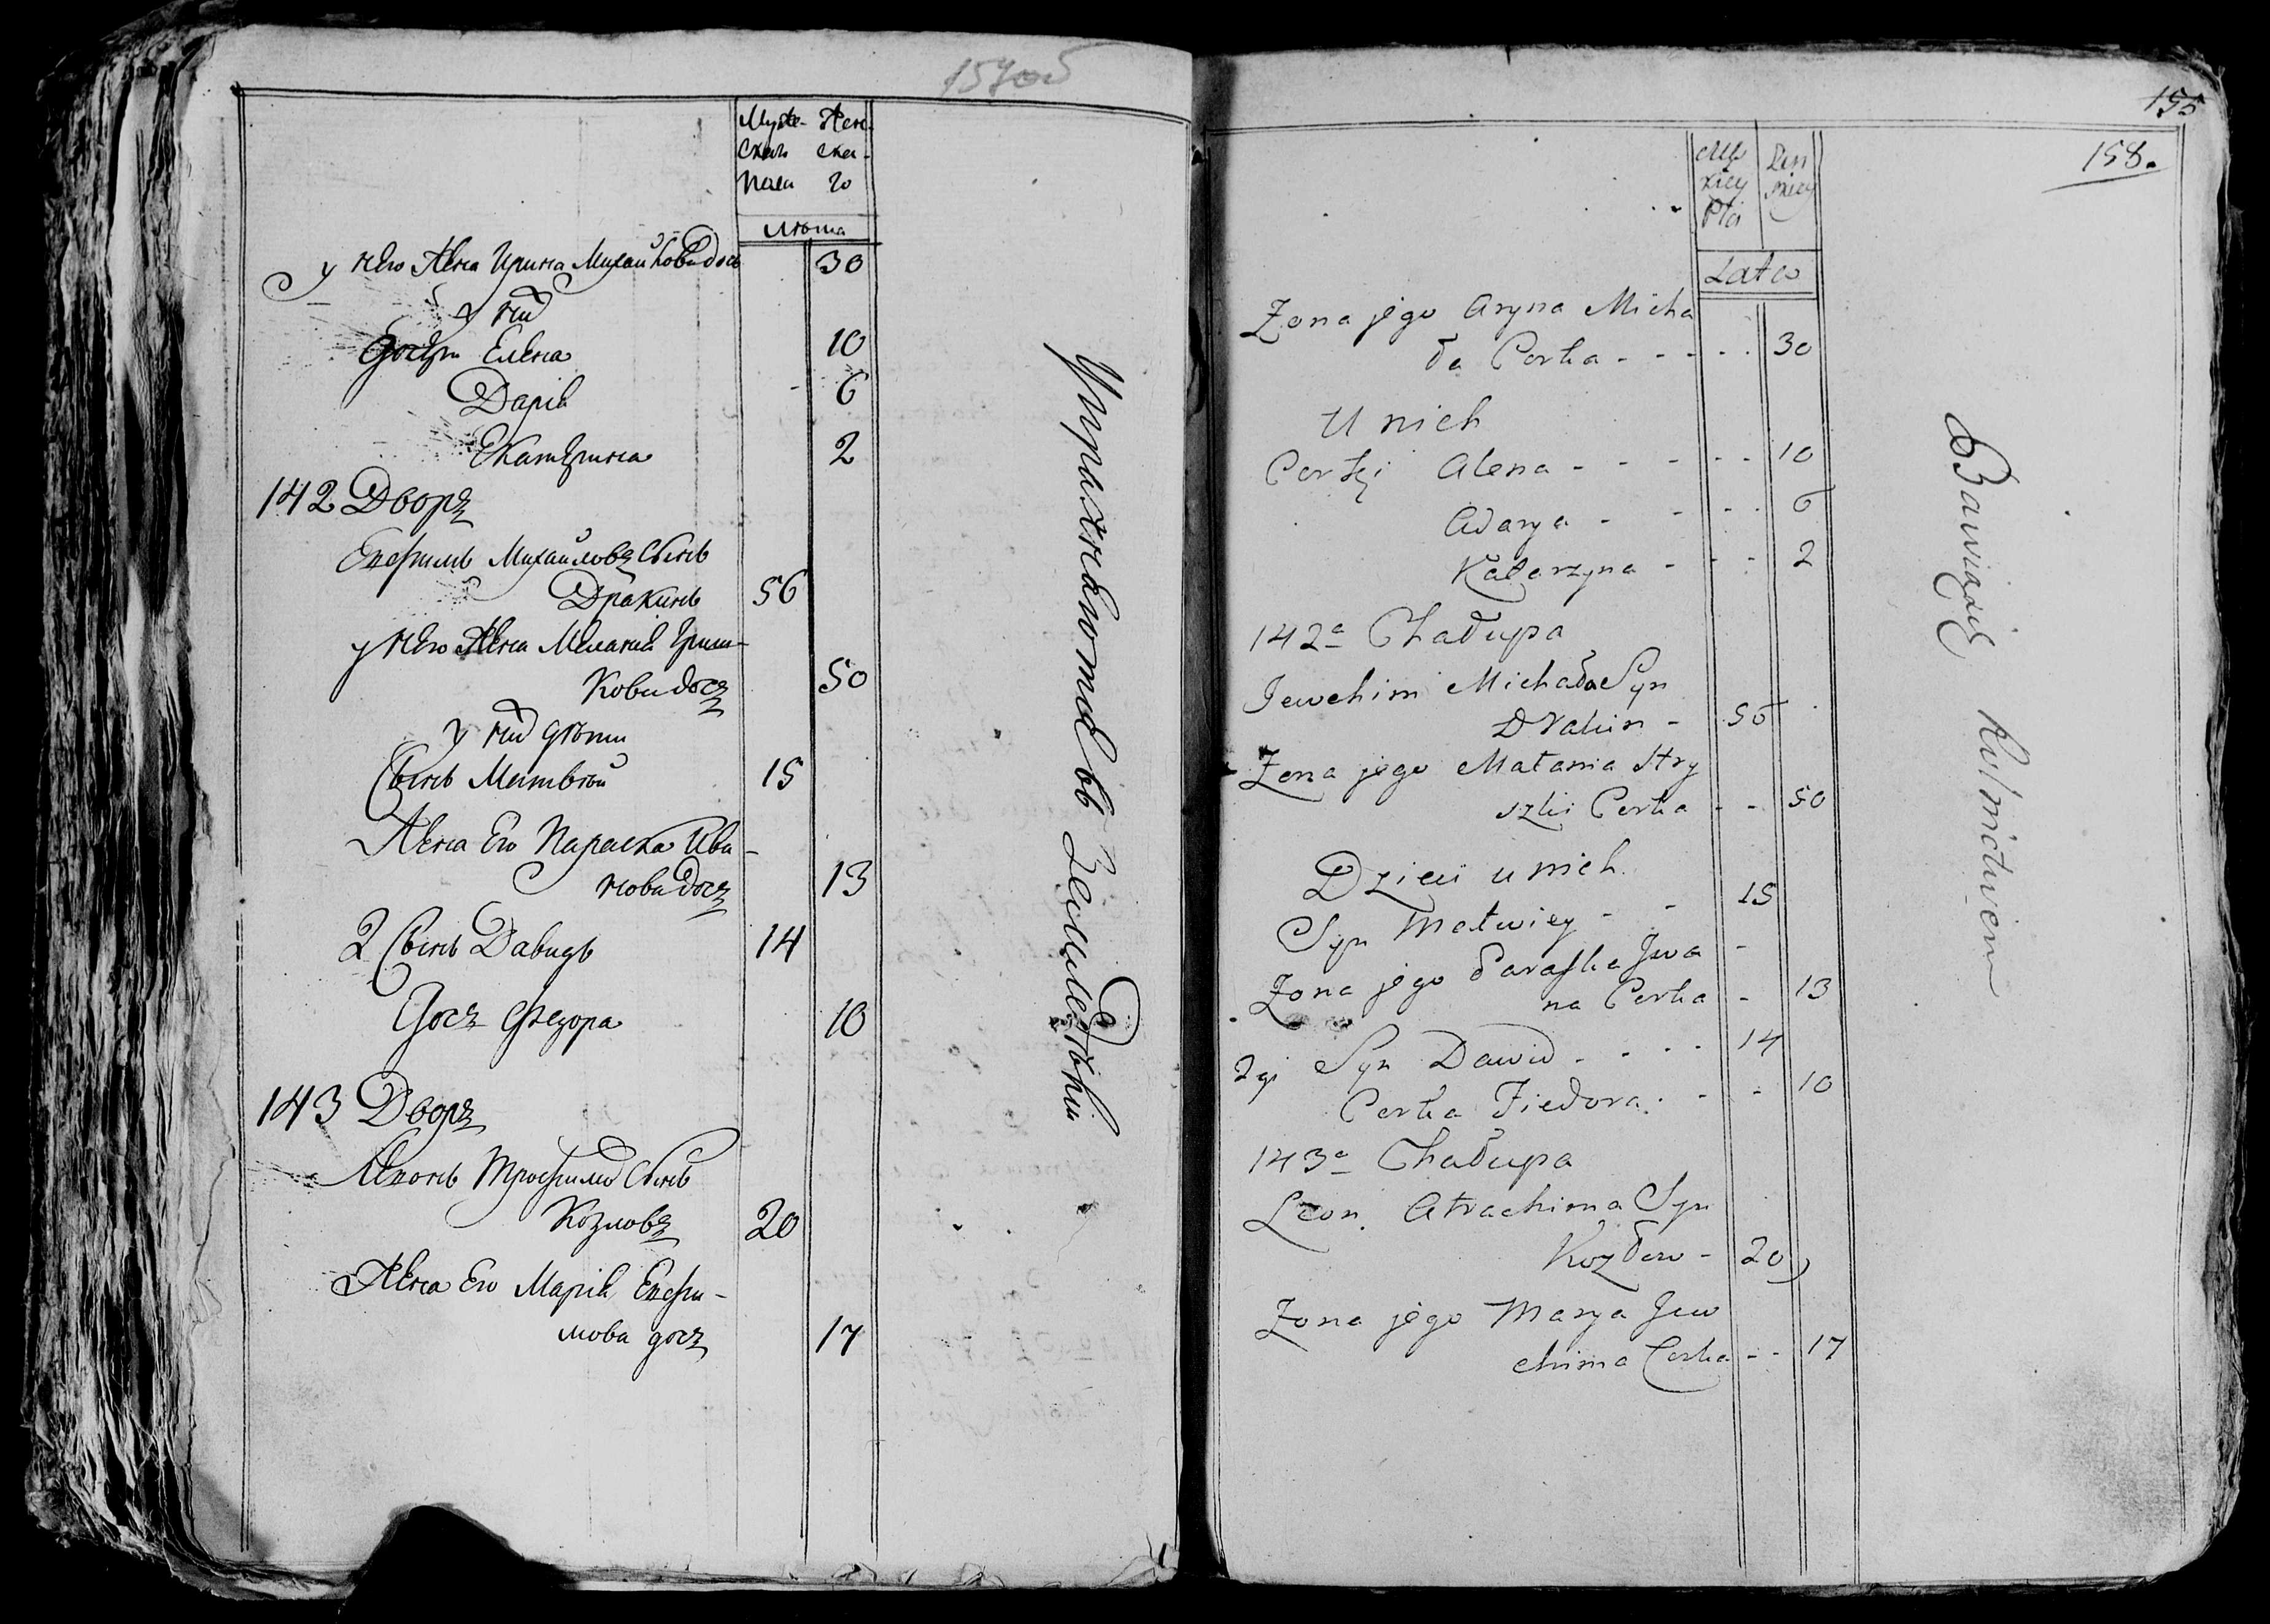 157об
Муже- Жен-
скаго ска-
пола го
Лѣта
у него жена Ирина Михайлова дочь 30
у них
дочери Елена 10
Дарія 6
Екатерина 2
142 Дворъ
Ефимъ Михайловъ сынъ
Дракинъ 56
у него жена Меланія Гриш-
кова дочь 50
у них дѣти
Сынъ Матвѣй 15
Жена его Параска Ива-
нова дочь 13
2 Сынъ Давидъ 14
Дочь Федора 10
143 Дворъ
Леонъ Трофимов Сынъ
Козловъ 20
Жена его Марія Ефи-
мова дочь 17
Упражняются въ Земледѣліи
155
158.
Męz Żen
kiey skiey
Płci
Lata
Żona jego Aryna Micha
ła Corka - - - - - 30
U nich
Corki Alena - - - - - 10
Adarya - - - - 6
Katarzyna - - - 2
142a Chałupa
Jewchim Michała Syn
Drakin - 56
Żona jego Małania Hry
szki Corka - - 50
Dzieci u nich
Syn Matwiey - - 15
Żona jego Paraska Jwa -
na Corka - 13
2gi Syn Dawid - - - - 14
Corka Fiedora - - - 10
143a Chałupa
Leon Atrachima Syn
Kozłow - 20
Żona jego Marya Jew
chima Corka - - 17
Bawią się Rolnictwem